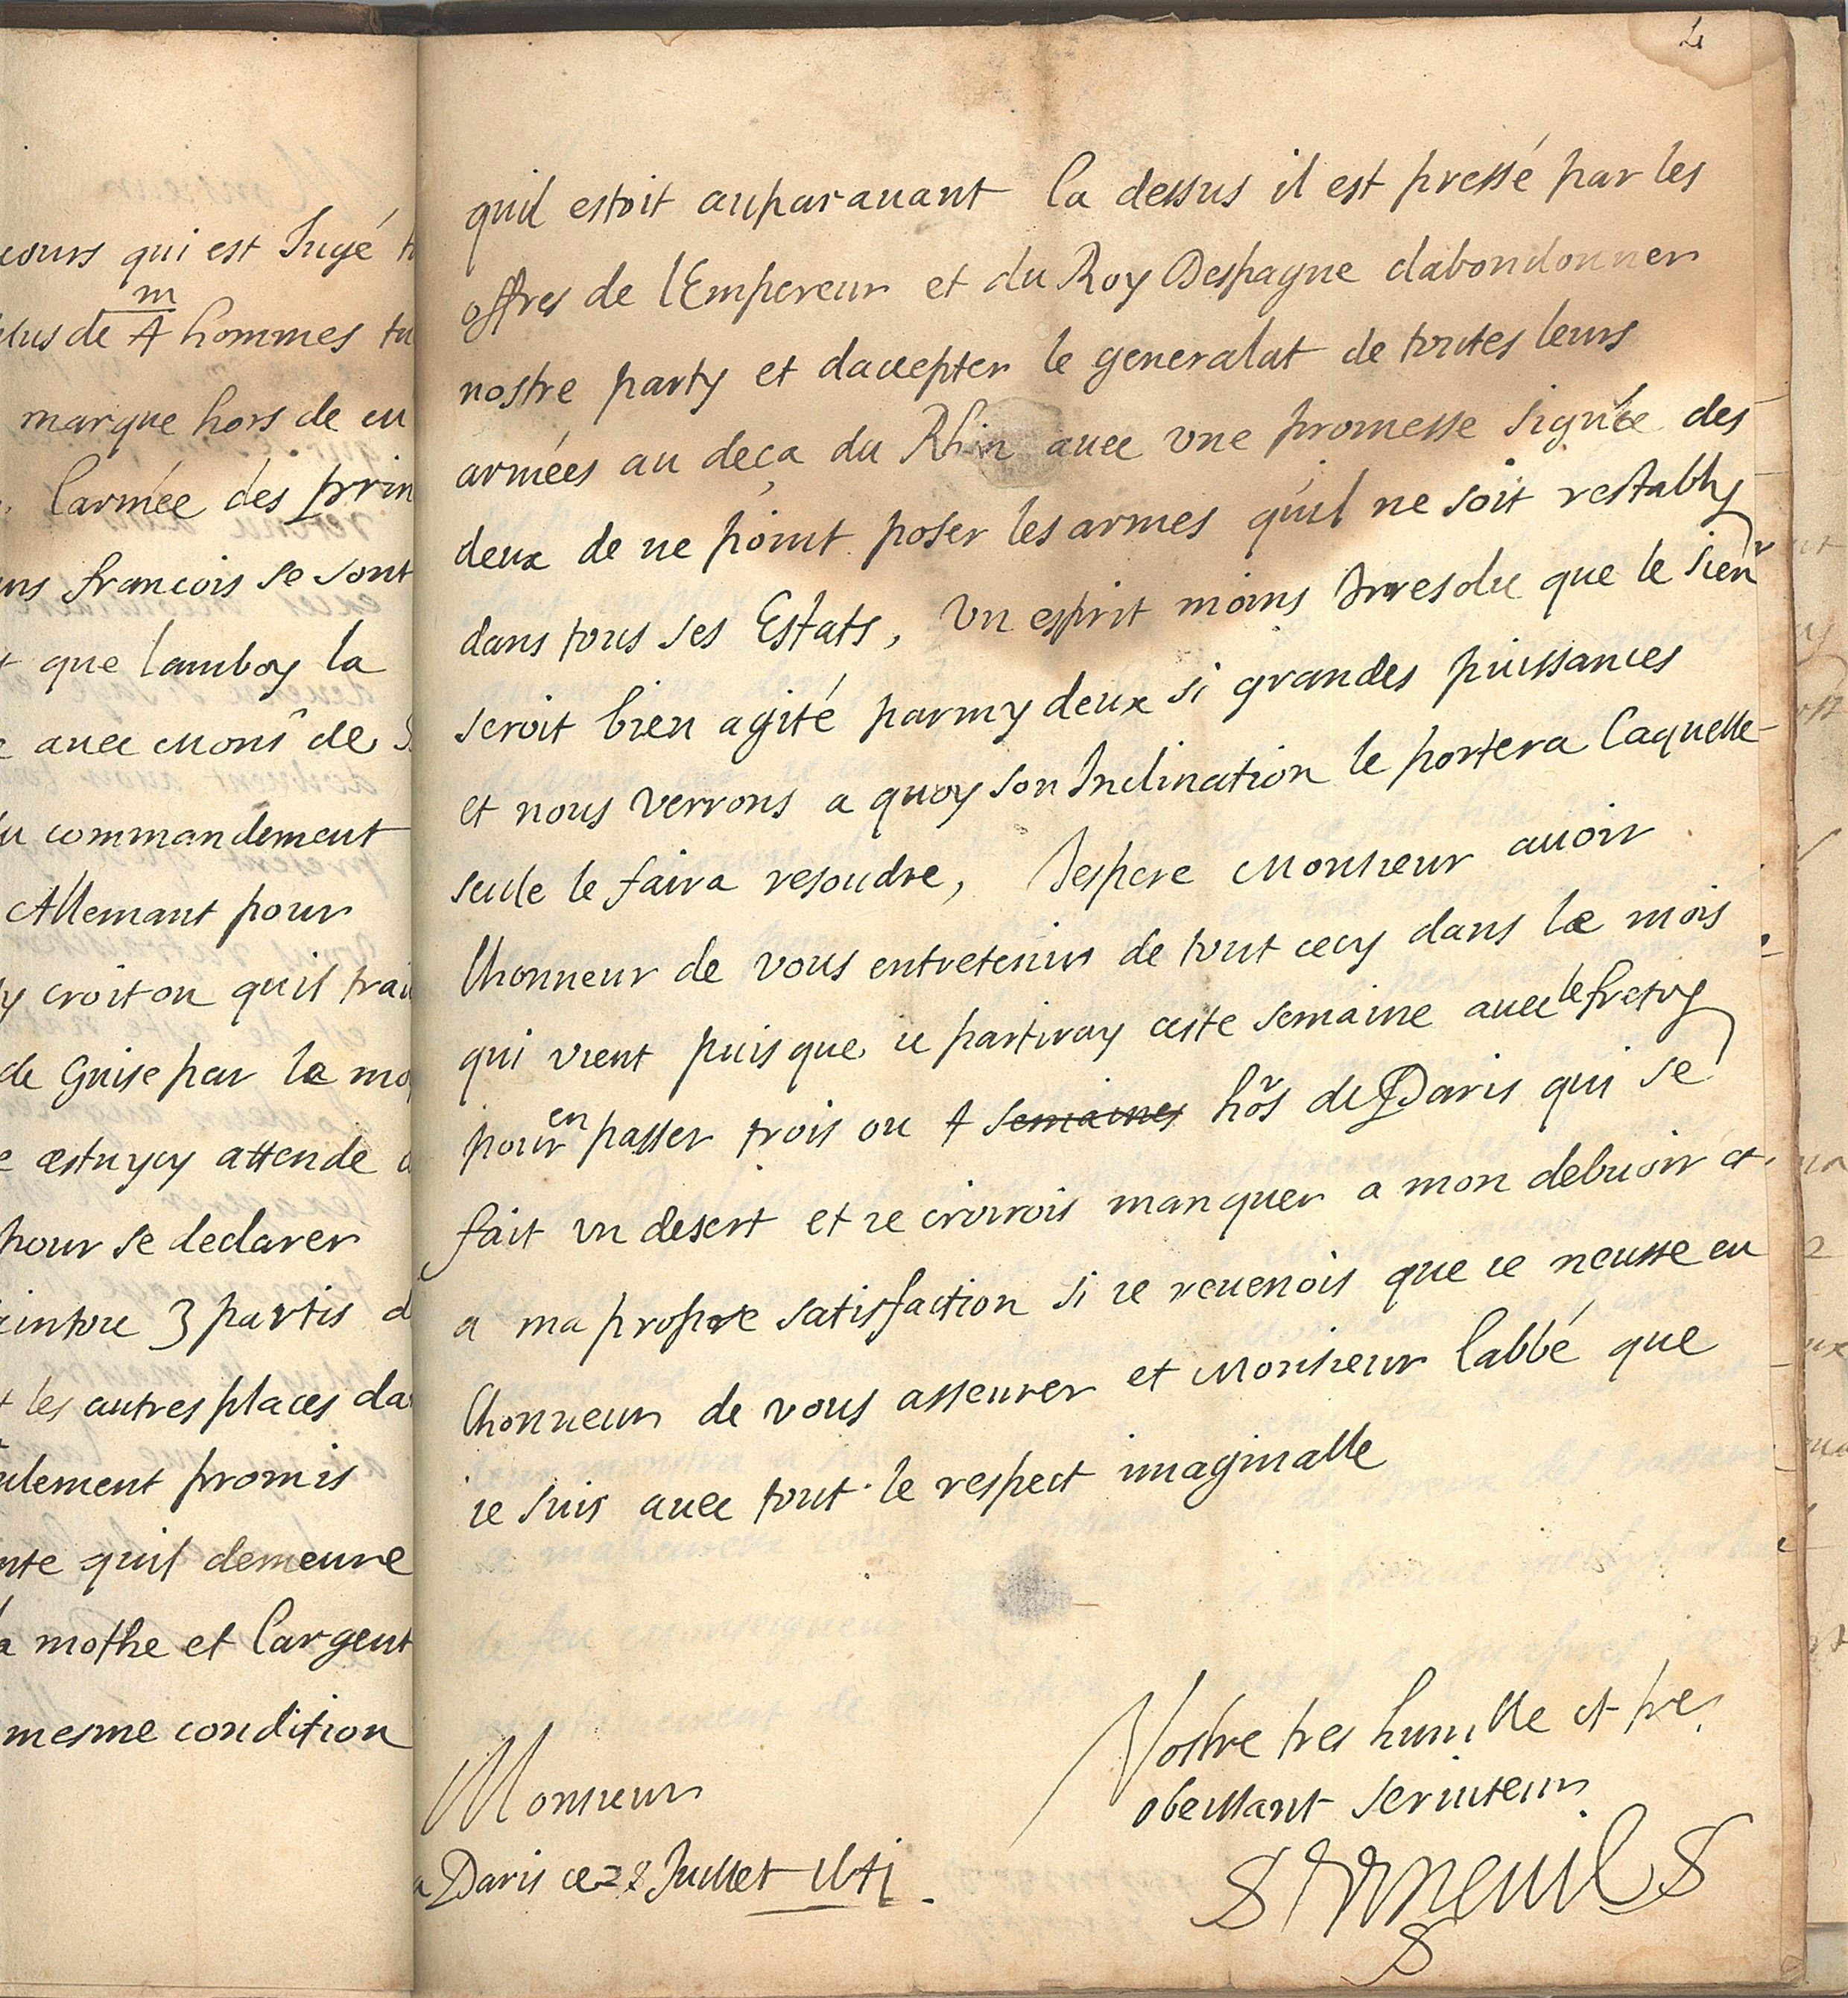 cours qui est Jugé
m
plus de 4 hommes tu
marque hors de cu
larmée des prin
ns francois se sont
que lamboy la
avec Mons de
u commandement
Allemant pour
y croit on quil trai
de Guise par la mo
e cestuycy attende
pour se declarer
3 partis d
les autres places da
ulement promis
nte quil demeure
la mothe et largent
mesme condition
quil estoit auparauant la dessus il est pressé par les
offres de lEmpereur et du Roy Despagne dabondonner
nostre party et daccepter le generalat de toutes leurs
armées au deça du Rhin auec vne promesse signée des
deux de ne point poser les armes quil ne soit restably
dans tous ses Estats, Vn esprit moins Irresolu que le sien
seroit bien agité parmy deux si grandes puissances
et nous verrons a quoy son Inclination le portera laquelle
seule le faira resoudre, Jespere Monsieur auoir
lhonneur de vous entretenir de tout cecy dans le mois
qui vient puis que ie partiray ceste semaine auec le fretoy
pour en passer trois ou 4 semaines hors de Paris qui se
fait vn desert et ie croirois manquer a mon debuoir et
a ma propre satisfaction si ie reuenois que ie neusse eu
lhonneur de vous asseurer et Monsieur labbé que
ie suis auec tout le respect imaginable
Vostre tres humble et tres
Monsieur
obeissant seruiteur
a Paris ce 28 Juillet 1641.